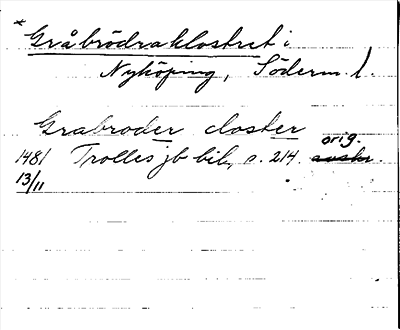 * Gråbrödraklostret i
Nyköping, Söderm. l.
Grabroder closter
1481 Trolles jb bil, s. 214. orig. avskr.
13/11